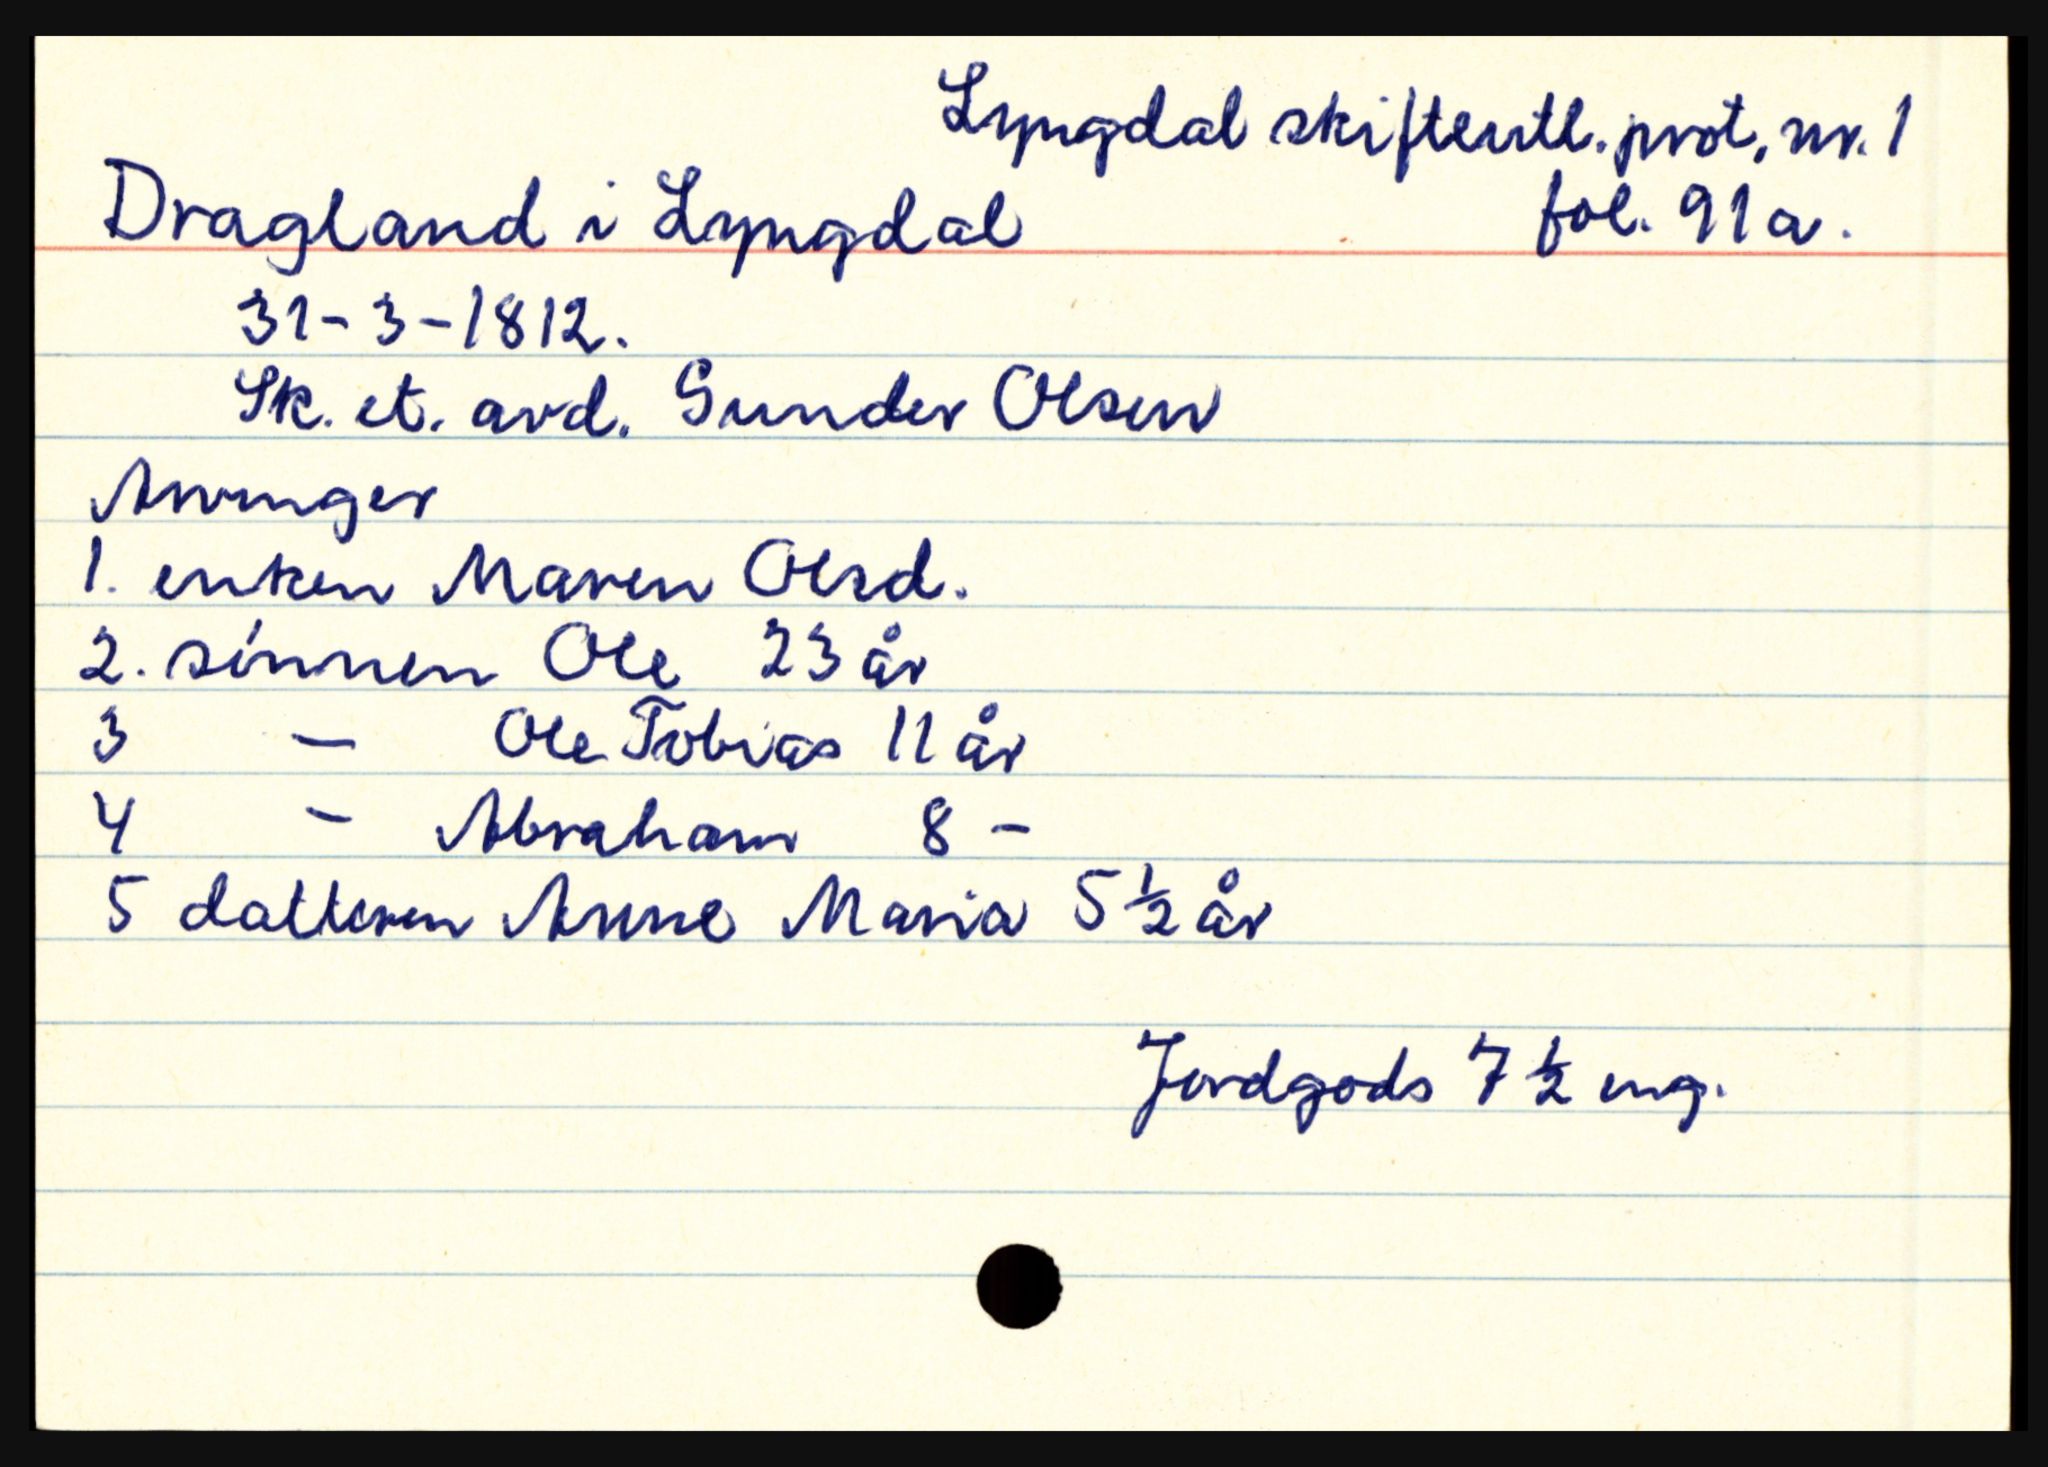 Lyngdal skifteutl. prot. nr. 1
Dragland i Lyngdal fol. 91a.
31-3-1812.
Sk. et. avd. Gunder Olsen
Arvinger
1. enken Maren Olsd.
2. sønnen Ole 23 år
3 - Ole Tobias 11 år
4 - Abraham 8 -
5 datteren Anne Maria 5 ½ år
Jordgods 7 ½ eng.